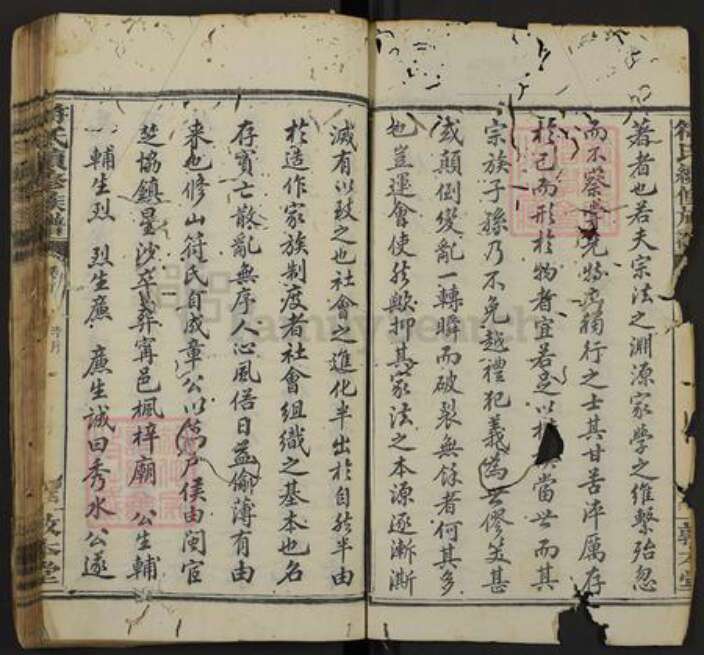 符氏續修族譜
著者也若夫宗法之淵源家學之維繫殆忽
而不察學先特立獨行之士其甘苦淬厲存
於己而形於物者宜若足以 當世而其
宗族子孫乃不免越禮犯義為世僇笑甚
或顛倒變亂一轉瞬而破裂無餘者何其多
也豈運會使然歟抑其家法之本源逐漸澌
敦本堂
滅有以致之也社會之進化半出於自然半由
於造作家族制度者社會組織之基本也名
存實亡散亂無序人心風俗日益偷薄有由
來也修山符氏自成章公以萬戶侯由閩官
楚協鎮星沙卒葬寧邑楓梓廟 公生輔
一輔生烈 烈生廉 廉生誠曰秀水公遂
符氏續修族譜
敦本堂
FamilySearch